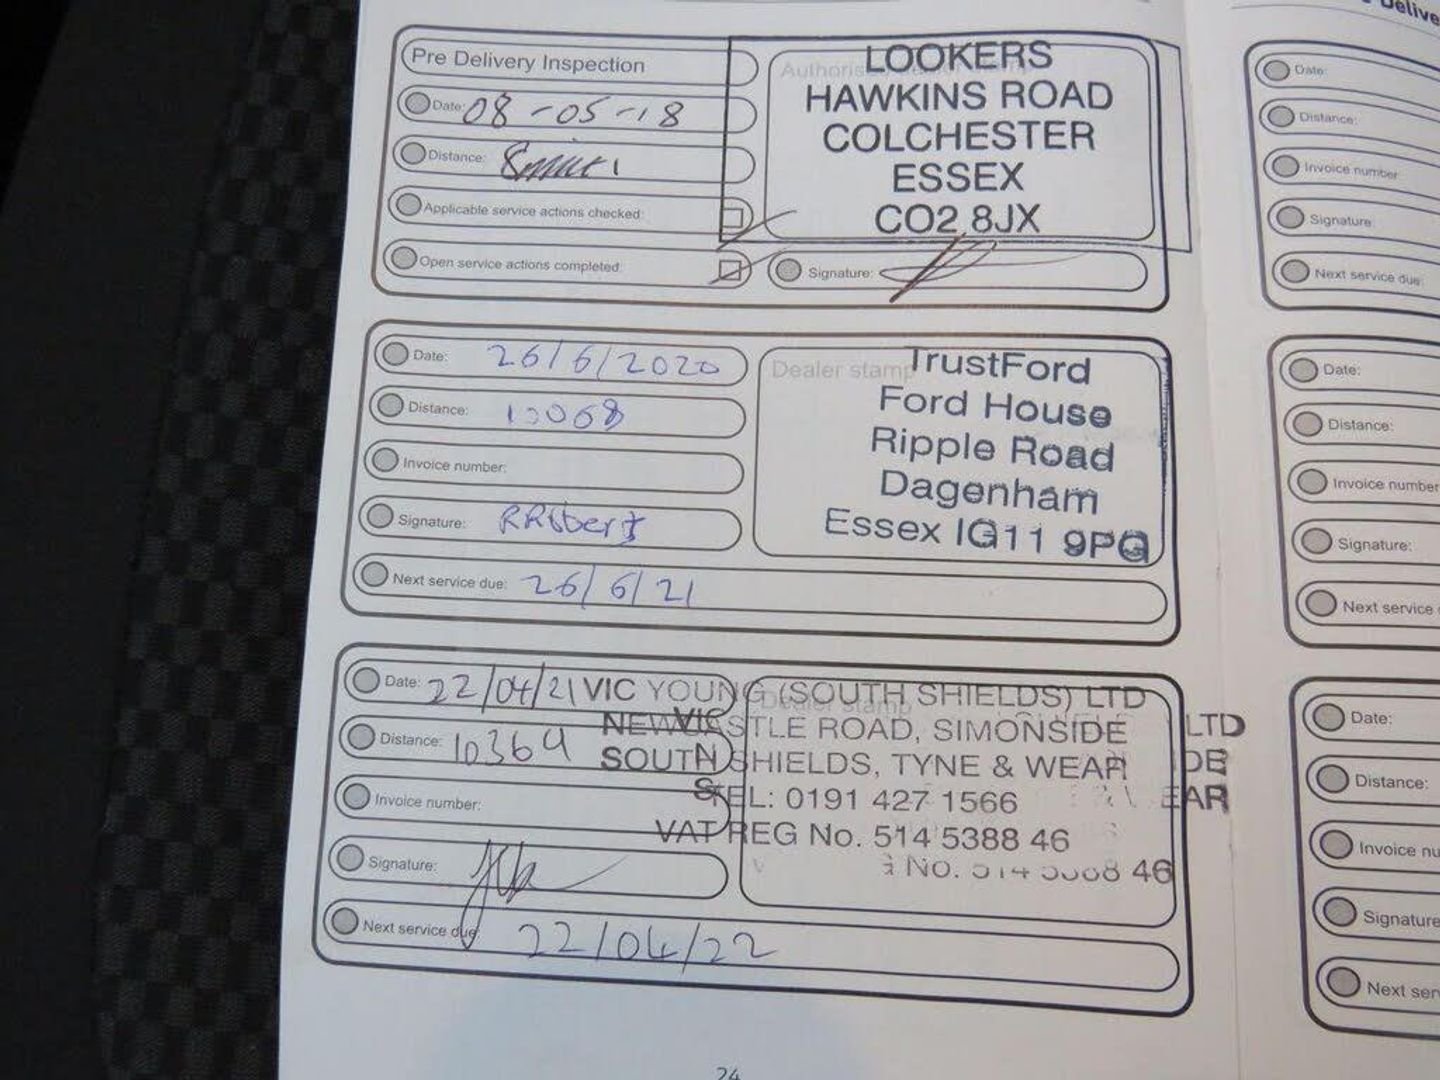 Delive
Pre Delivery Inspection
Date: 08-05-18
Distance: 8
Applicable service actions checked:
Open service actions completed:
LOOKERS
HAWKINS ROAD
COLCHESTER
ESSEX
CO2 8JX
Signature:
Date: 26/6/2020
Distance: 10068
Invoice number:
Signature:
Next service due: 26/6/21
Dealer stamp
TrustFord
Ford House
Ripple Road
Dagenham
Essex IG11 9PG
Date: 22/04/21
Distance: 10364
Invoice number:
Signature:
Next service due: 22/04/22
Dealer stamp
VIC YOUNG (SOUTH SHIELDS) LTD
NEWCASTLE ROAD, SIMONSIDE
SOUTH SHIELDS, TYNE & WEAR
TEL: 0191 427 1566
VAT REG No. 514 5388 46
LTD
DE
EAR
No. 514 5388 46
24
Date:
Distance:
Invoice number
Signature:
Next service due:
Date:
Distance:
Invoice number
Signature:
Next service
Date:
Distance:
Invoice nu
Signature
Next ser